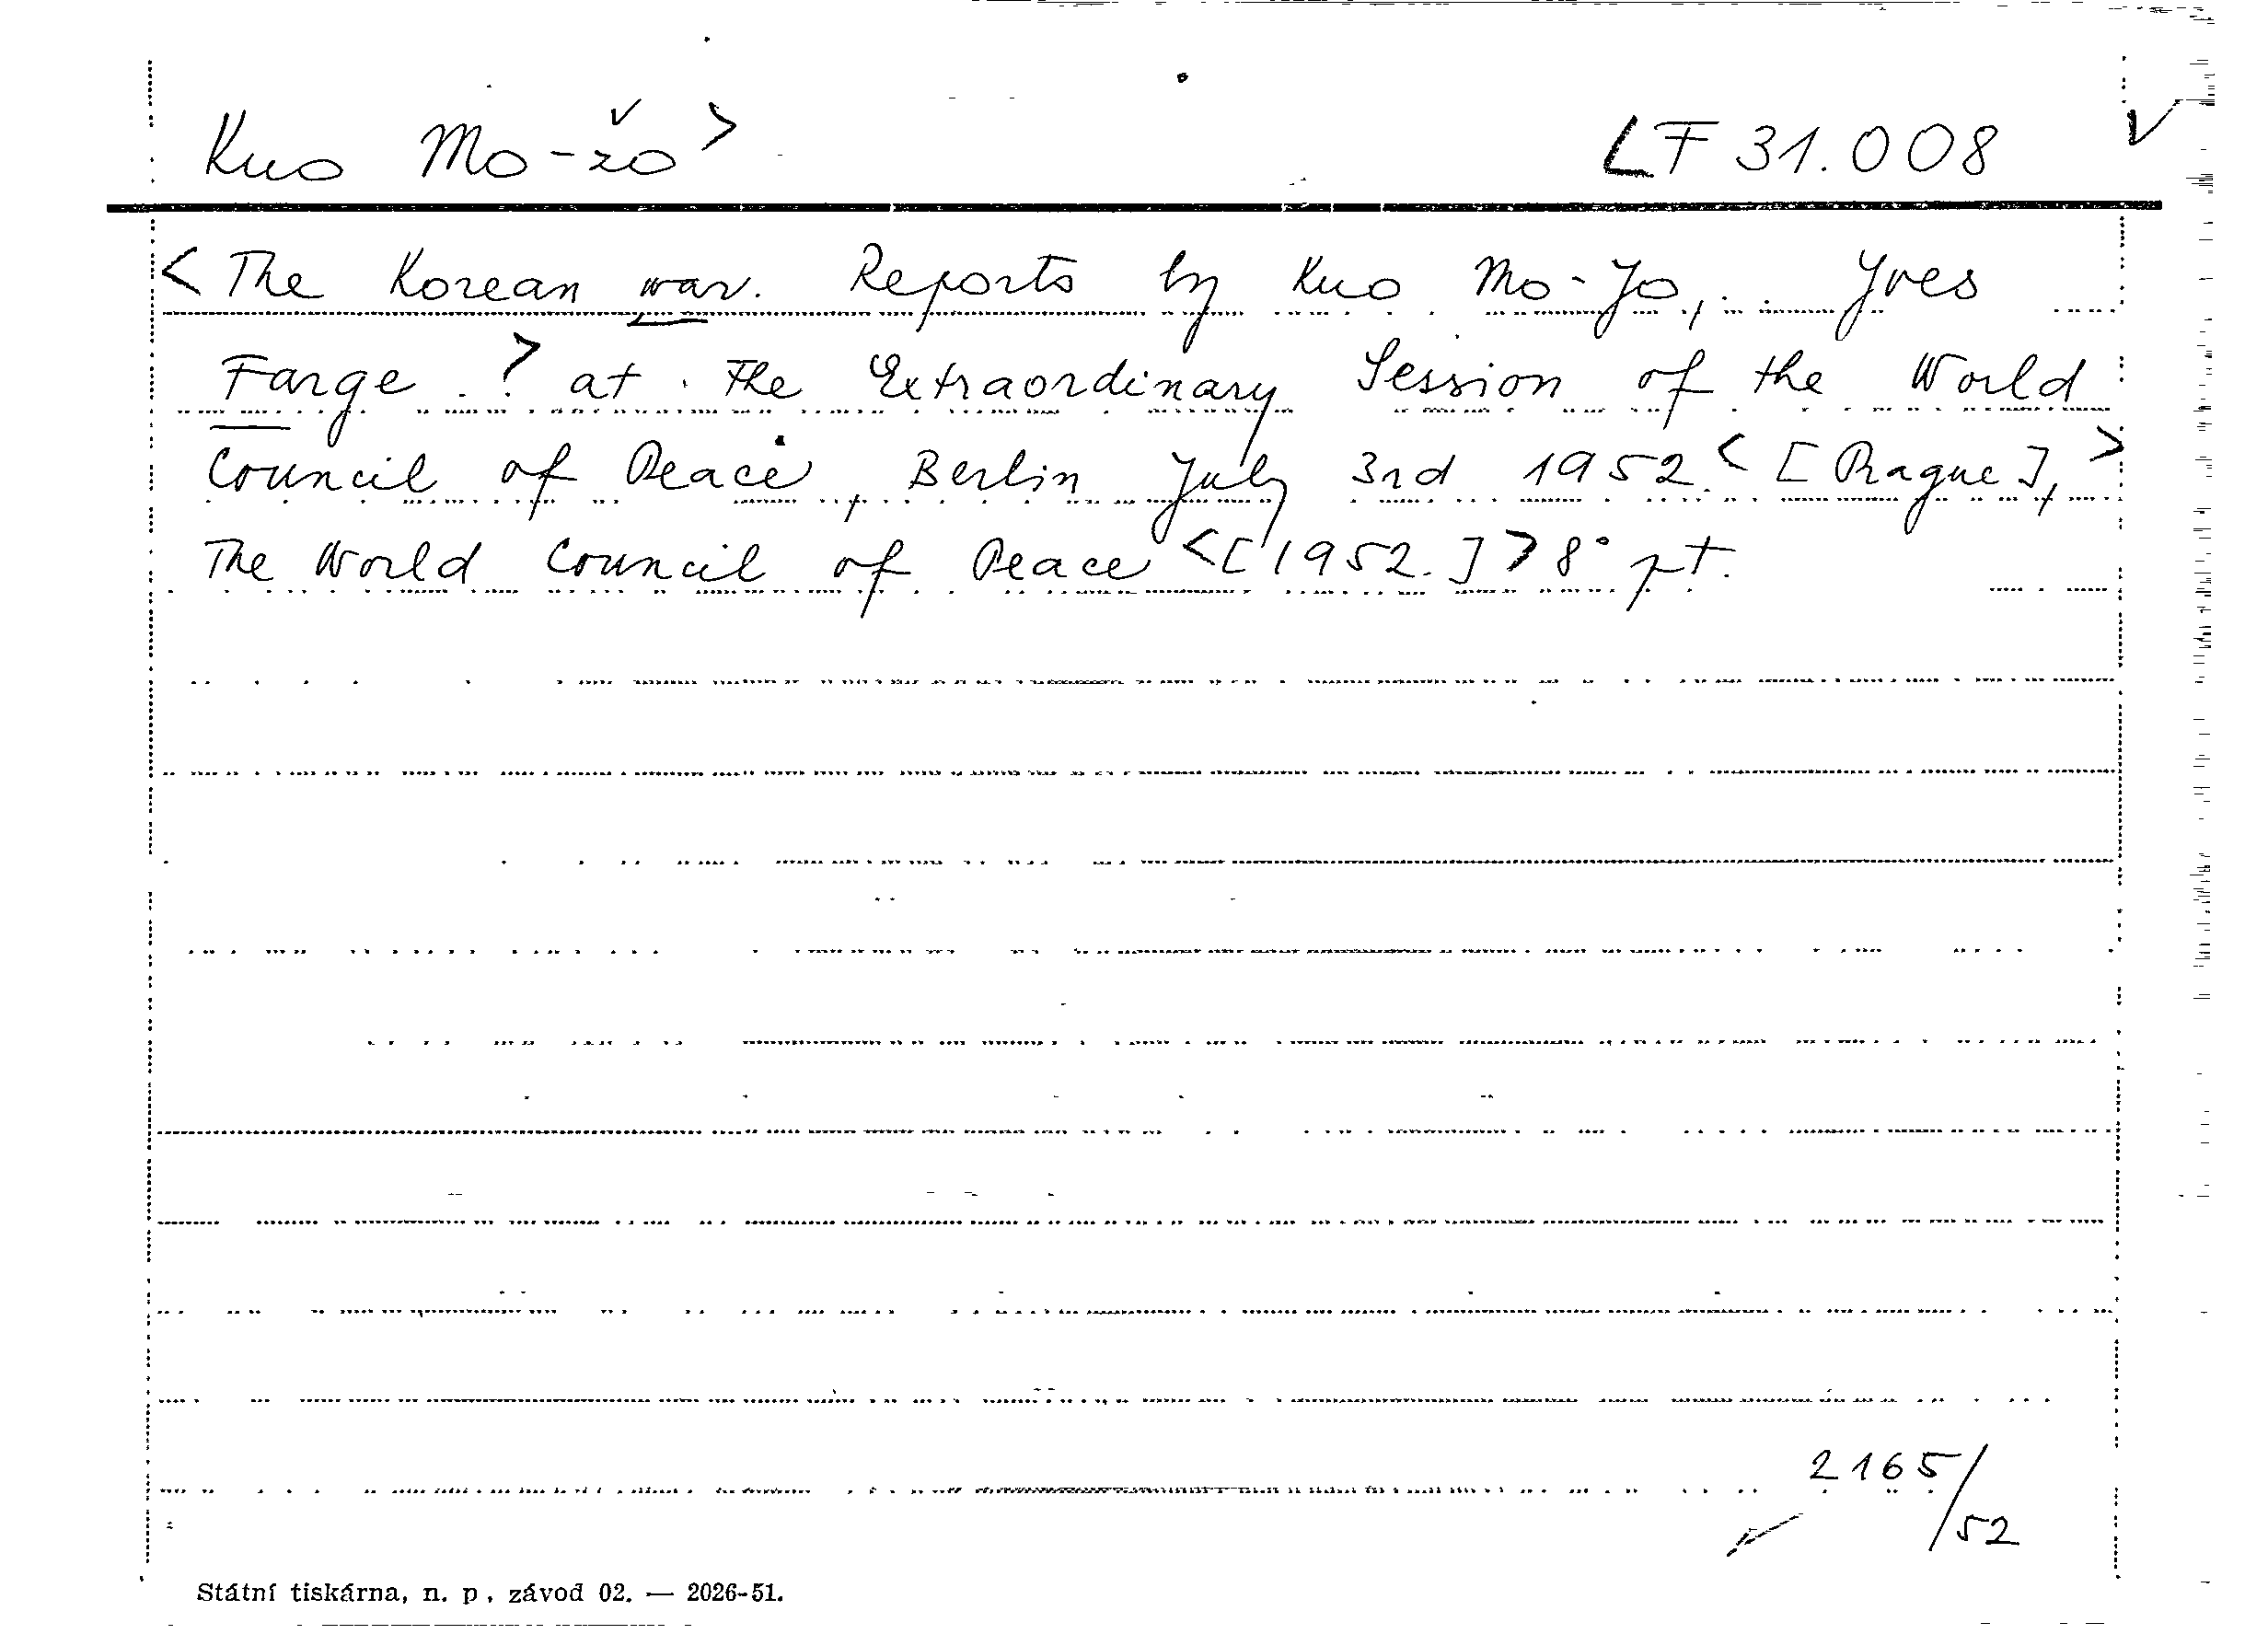 Kuo Mo-žo > LF 31.008 ✓
< The Korean war. Reports by Kuo Mo-Jo, .. Yves
Farge . ? > at the Extraordinary Session of the World
Council of Peace, Berlin July 3rd 1952. < [Prague], >
The World Council of Peace < [1952.] > 8° pt.
2165/52
Státní tiskárna, n. p., závod 02. — 2026-51.